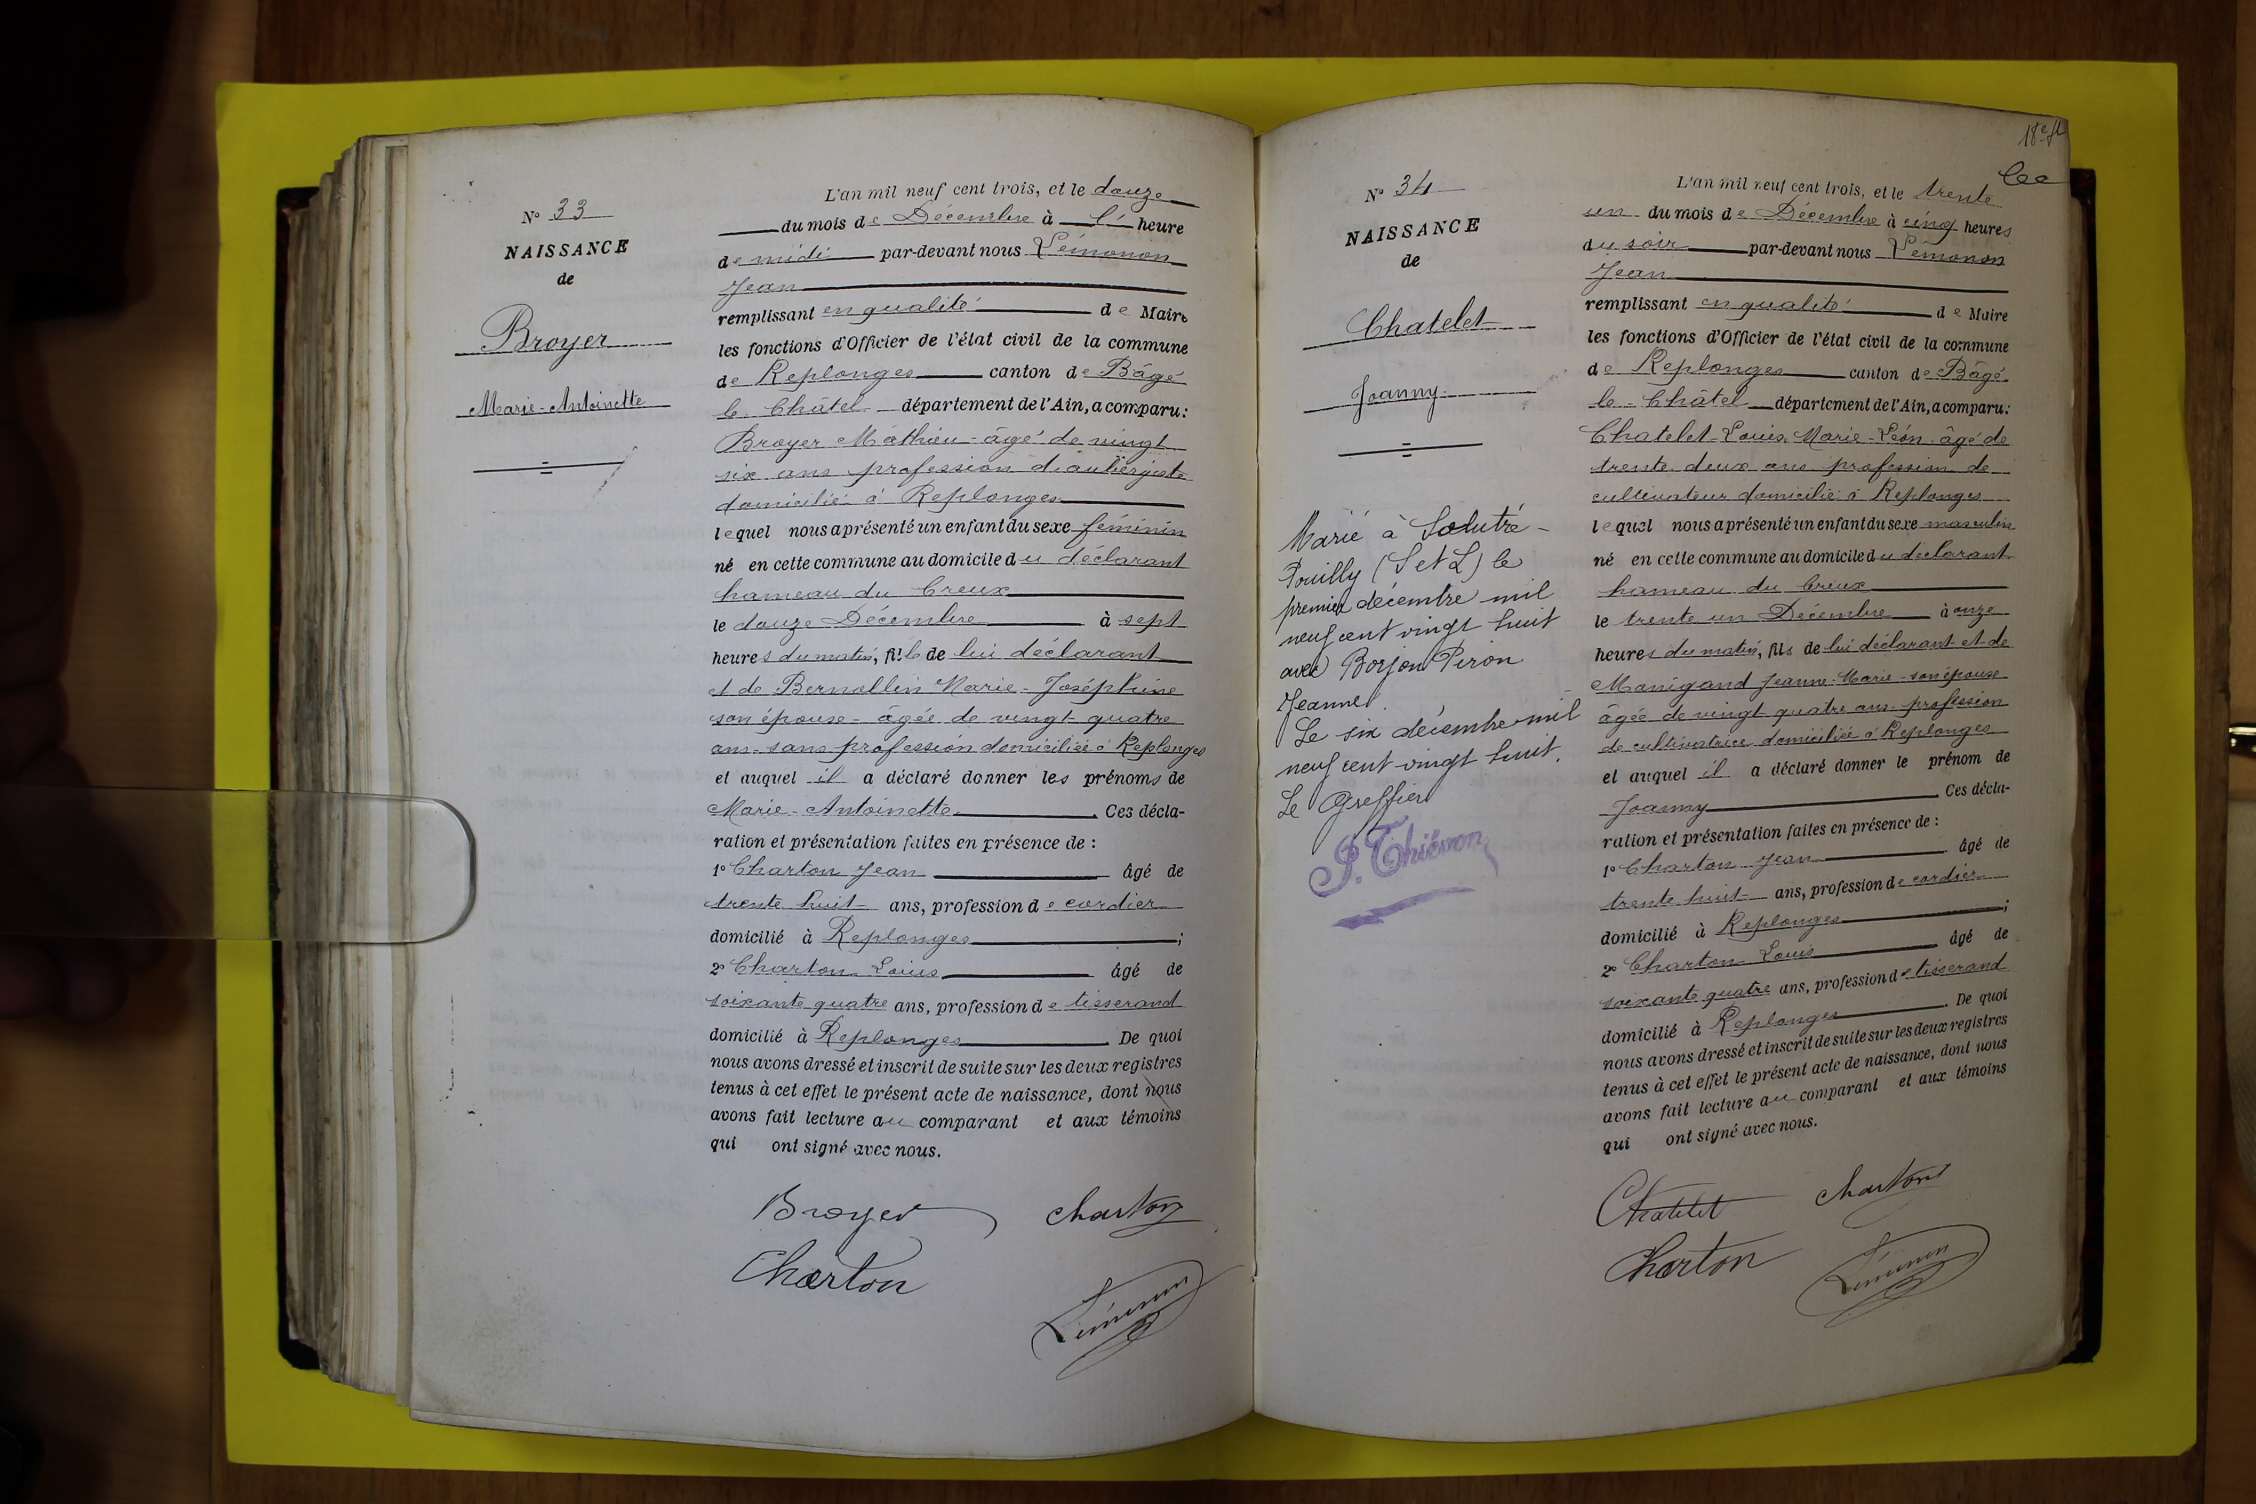 N° 33
NAISSANCE
de
Broyer
Marie-Antoinette
L'an mil neuf cent trois, et le douze
du mois de Décembre à l' heure
de midi par-devant nous Lémonon
Jean
remplissant en qualité de Maire
les fonctions d'Officier de l'état civil de la commune
de Replonges canton de Bâgé
le Châtel département de l'Ain, a comparu :
Broyer Mathieu âgé de vingt
six ans profession d'aubergiste
domicilié à Replonges
lequel nous a présenté un enfant du sexe féminin
né en cette commune au domicile du déclarant
hameau du Creux
le douze Décembre à sept
heures du matin, fille de lui déclarant
et de Bernollin Marie-Joséphine
son épouse âgée de vingt quatre
ans sans profession domiciliée à Replonges
et auquel il a déclaré donner les prénoms de
Marie-Antoinette. Ces décla-
ration et présentation faites en présence de :
1° Charton Jean âgé de
trente huit ans, profession de cordier
domicilié à Replonges ;
2° Charton Louis âgé de
soixante quatre ans, profession de tisserand
domicilié à Replonges. De quoi
nous avons dressé et inscrit de suite sur les deux registres
tenus à cet effet le présent acte de naissance, dont nous
avons fait lecture au comparant et aux témoins
qui ont signé avec nous.
Broyer Charton
Charton
Lémonon
18e ft
N° 34
NAISSANCE
de
Chatelet
Joanny
Marié à Solutré-
Pouilly (S et L) le
premier décembre mil
neuf cent vingt huit
avec Borjon Piron
Jeanne.
Le six décembre mil
neuf cent vingt huit.
Le Greffier
P. Thiévon
L'an mil neuf cent trois, et le trente
un du mois de Décembre à cinq heures
du soir par-devant nous Lémonon
Jean
remplissant en qualité de Maire
les fonctions d'Officier de l'état civil de la commune
de Replonges canton de Bâgé
le-Châtel département de l'Ain, a comparu :
Chatelet Louis Marie-Léon âgé de
trente deux ans profession de
cultivateur domicilié à Replonges
lequel nous a présenté un enfant du sexe masculin
né en cette commune au domicile du déclarant
hameau du Creux
le trente un Décembre à onze
heures du matin, fils de lui déclarant et de
Manigand Jeanne-Marie son épouse
âgée de vingt quatre ans profession
de cultivatrice domiciliée à Replonges
et auquel il a déclaré donner le prénom de
Joanny Ces décla-
ration et présentation faites en présence de :
1° Charton Jean âgé de
trente huit ans, profession de cordier
domicilié à Replonges ;
2° Charton Louis âgé de
soixante quatre ans, profession de tisserand
domicilié à Replonges. De quoi
nous avons dressé et inscrit de suite sur les deux registres
tenus à cet effet le présent acte de naissance, dont nous
avons fait lecture au comparant et aux témoins
qui ont signé avec nous.
Chatelet Charton
Charton
Lémonon